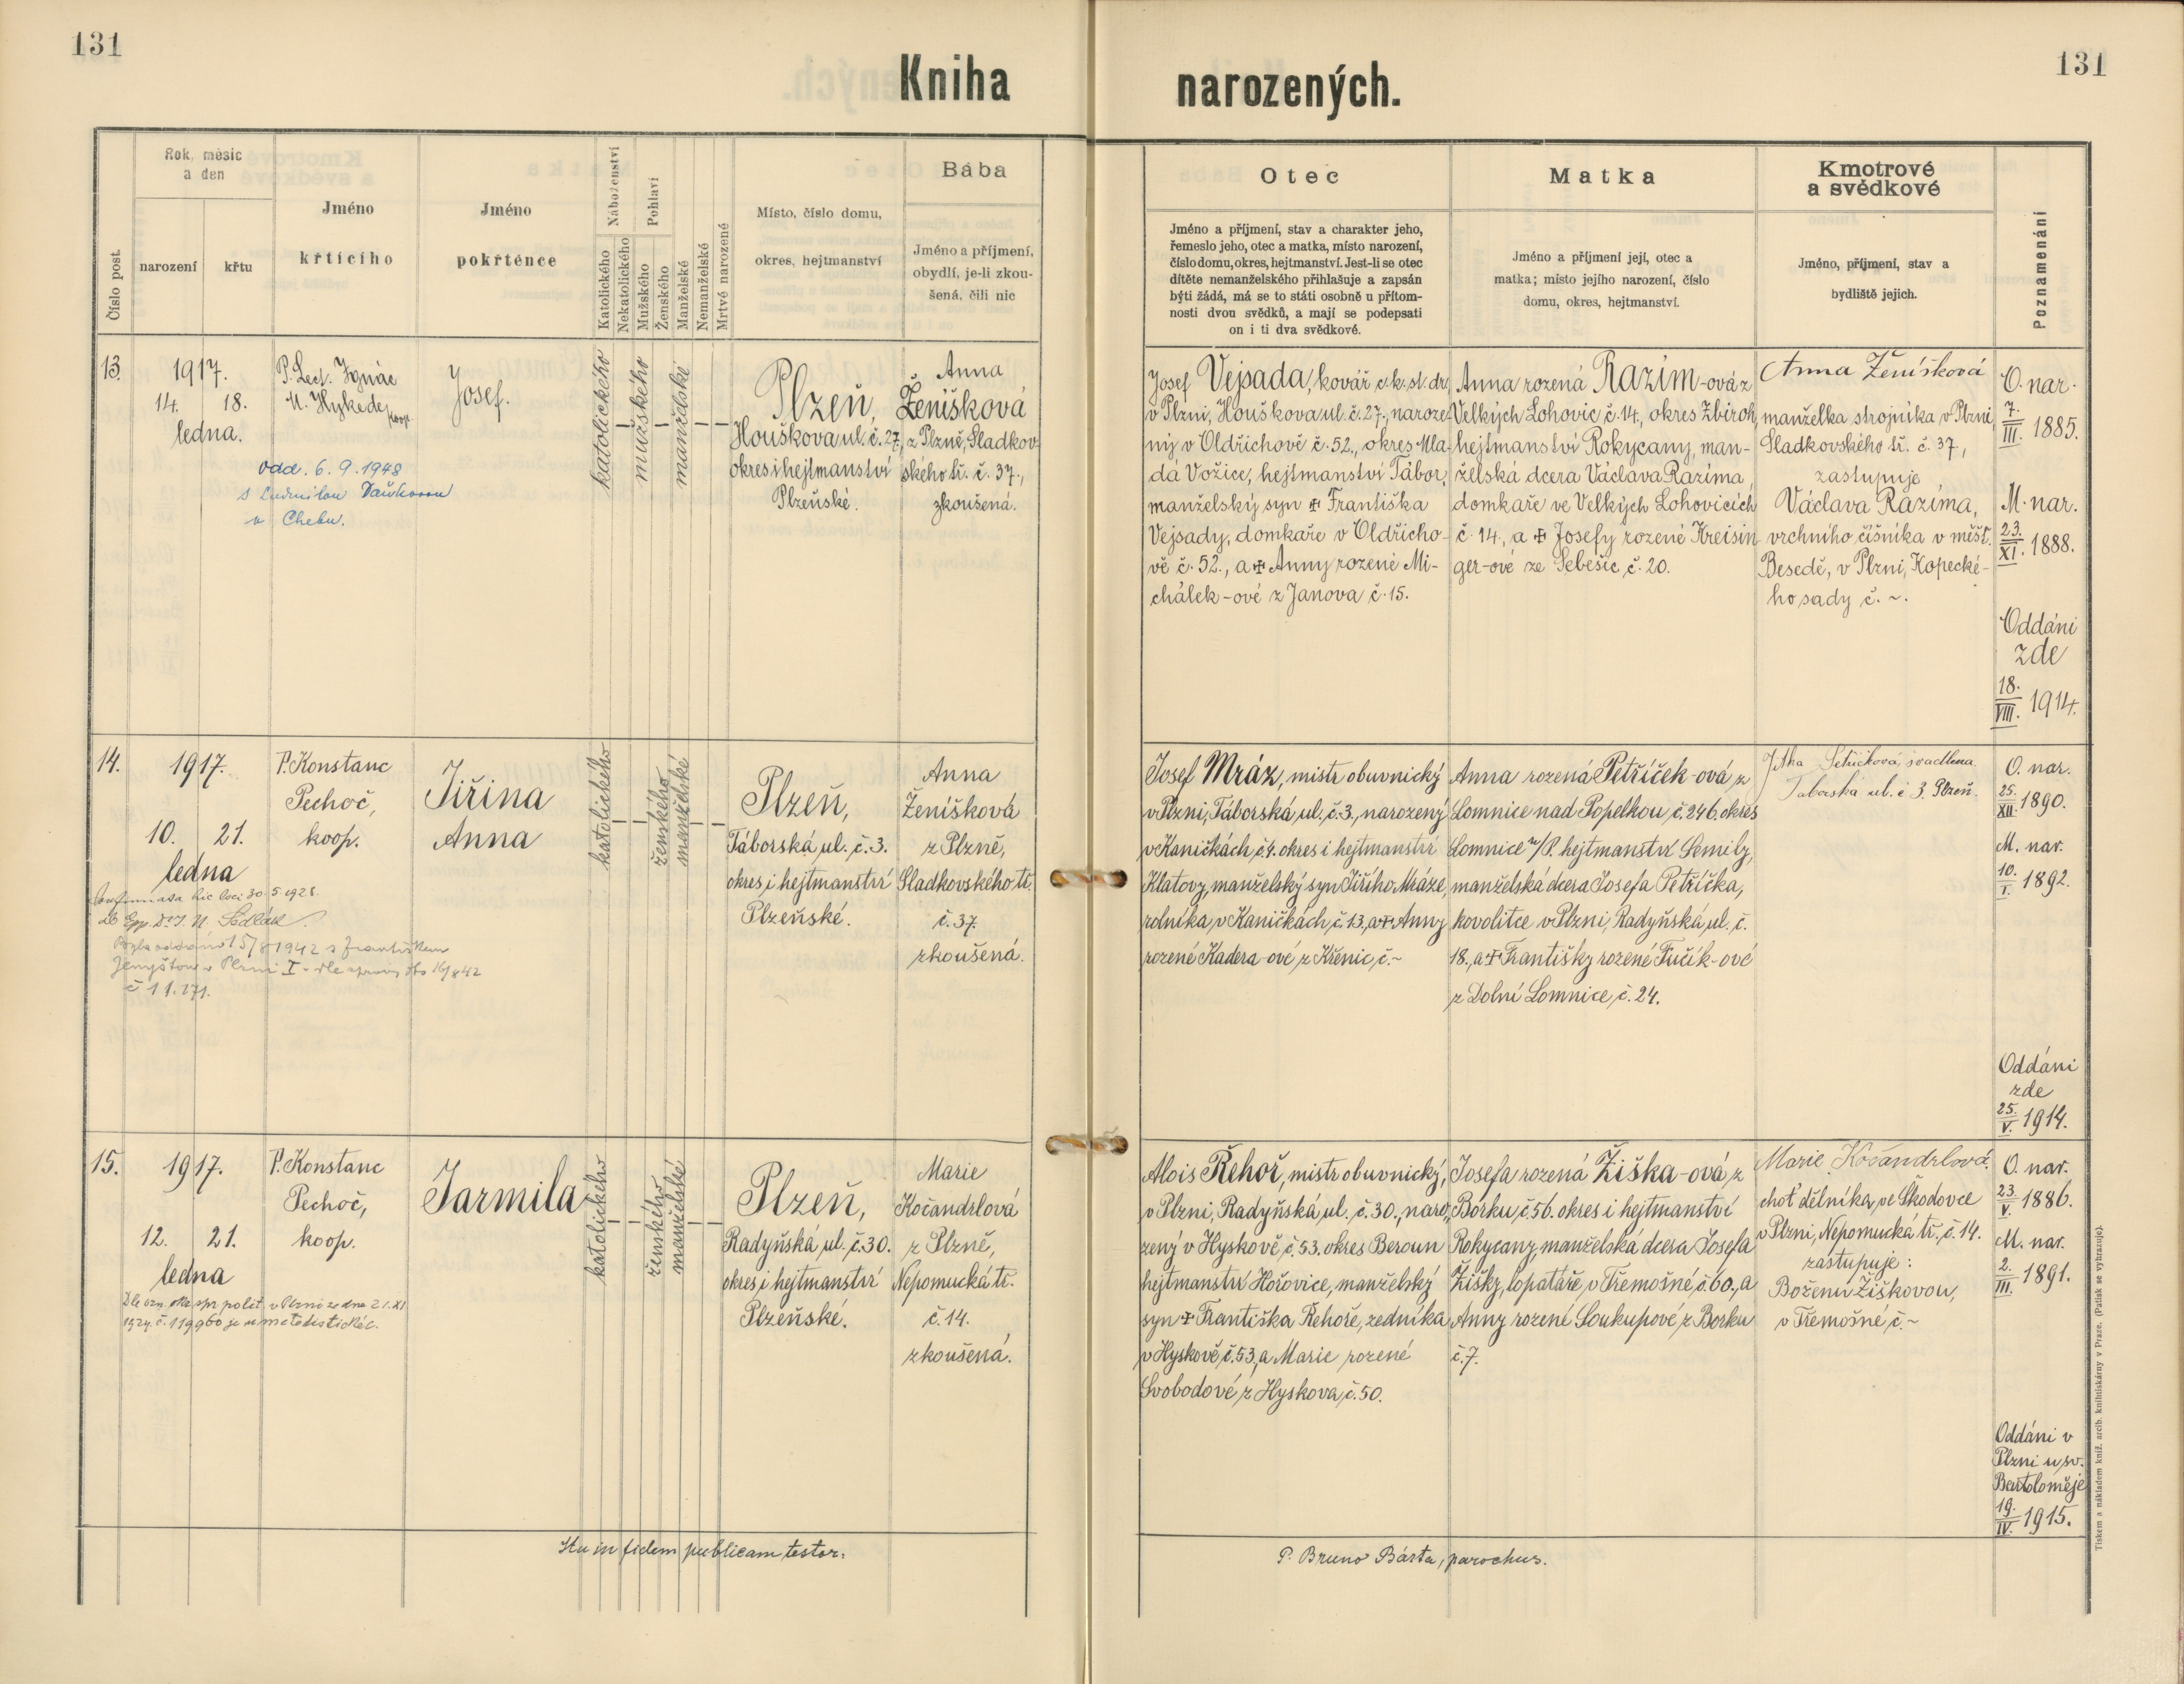 131
131
Kniha narozených.
Číslo post.
Rok, měsíc
a den
narození
křtu
Jméno
křtícího
Jméno
pokřtěnce
Náboženství
Katolického
Nekatolického
Pohlaví
Mužského
Ženského
Manželské
Nemanželské
Mrtvě narozené
Místo, číslo domu,
okres, hejtmanství
Bába
Jméno a příjmení,
obydlí, je-li zkou-
šená, čili nic
Otec
Jméno a příjmení, stav a charakter jeho,
řemeslo jeho, otec a matka, místo narození,
číslo domu, okres, hejtmanství. Jest-li se otec
dítěte nemanželského přihlašuje a zapsán
býti žádá, má se to státi osobně u přítom-
nosti dvou svědků, a mají se podepsati
on i ti dva svědkové.
Matka
Jméno a příjmení její, otec a
matka; místo jejího narození, číslo
domu, okres, hejtmanství.
Kmotrové
a svědkové
Jméno, příjmení, stav a
bydliště jejich.
Poznamenání
13.
1917.
14. 18.
ledna.
P. Lect. Ignác
M. Hykede,
koop.
Josef.
katolického
mužského
manželské
Plzeň,
Houškova ul. č. 27,
okres i hejtmanství
Plzeňské.
Anna
Ženíšková
z Plzně, Sladkov-
ského tř. č. 37.,
zkoušená.
odd. 6. 9. 1948
s Ludmilou
v Chebu.
Josef Vejsada, kovář c. k. st. dr.
v Plzni, Houškova ul. č. 27., naroze-
ný v Oldřichově č. 52., okres Mla-
dá Vožice, hejtmanství Tábor,
manželský syn ✠ Františka
Vejsady, domkaře v Oldřicho-
vě č. 52., a ✠ Anny rozené Mi-
chálek-ové z Janova č. 15.
Anna rozená Razím-ová z
Velkých Lohovic č. 14., okres Zbiroh,
hejtmanství Rokycany, man-
želská dcera Václava Razíma,
domkaře ve Velkých Lohovicích
č. 14., a ✠ Josefy rozené Kreisin-
ger-ové ze Sebešic, č. 20.
Anna Ženíšková
manželka strojníka v Plzni,
Sladkovského tř. č. 37,
zastupuje
Václava Razíma,
vrchního číšníka v měšť.
Besedě, v Plzni, Kopecké-
ho sady č. ~.
O. nar.
7./III. 1885.
M. nar.
23./XI. 1888.
Oddáni
zde
18./VIII. 1914.
14.
1917.
10. 21.
ledna
P. Konstanc
Pechoč,
koop.
Jiřina
Anna
katolického
ženského
manželské
Plzeň,
Táborská ul. č. 3.
okres i hejtmanství
Plzeňské.
Anna
Ženíšková
z Plzně,
Sladkovského tř.
č. 37.
zkoušená.
Confirmata hic loci 30. 5. 1928.
Sedlák
Byla oddána 15/8 1942 s Františkem
v Plzni I - dle
č 11.271.
Josef Mráz, mistr obuvnický
v Plzni, Táborská ul. č. 3., narozený
v Kaničkách, č. 4. okres i hejtmanství
Klatovy, manželský syn Jiřího Mráze,
rolníka v Kaničkách, č. 13, a ✠ Anny
rozené Kadera-ové z Křenic, č. ~
Anna rozená Petříček-ová z
Lomnice nad Popelkou, č. 246. okres
Lomnice n/P. hejtmanství Semily,
manželská dcera Josefa Petříčka,
kovolitce v Plzni, Radyňská ul. č.
18., a ✠ Františky rozené Fučík-ové
z Dolní Lomnice, č. 24.
Jitka Petříčková, švadlena
Táborská ul. č 3. Plzeň.
O. nar.
25./XII. 1890.
M. nar.
10./I. 1892.
Oddáni
zde
25./V. 1914.
15.
1917.
12. 21.
ledna
P. Konstanc
Pechoč,
koop.
Jarmila
katolického
ženského
manželské
Plzeň,
Radyňská ul. č. 30.
okres i hejtmanství
Plzeňské.
Marie
Kočandrlová
z Plzně,
Nepomucká tř.
č. 14.
zkoušená.
Dle ozn. okr. spr. polit. v Plzni ze dne 21. XI.
č. 119960 je
Alois Řehoř, mistr obuvnický,
v Plzni, Radyňská ul. č. 30., naro-
zený v Hyskově č. 53. okres Beroun
hejtmanství Hořovice, manželský
syn ✠ Františka Řehoře, zedníka
v Hyskově, č. 53, a Marie rozené
Svobodové z Hyskova, č. 50.
Josefa rozená Žiška-ová z
Borku, č. 56. okres i hejtmanství
Rokycany, manželská dcera Josefa
Žišky, lopatáře, v Třemošné, č. 60., a
Anny rozené Soukupové z Borku
č. 7.
Marie Kočandrlová.
choť dělníka, ve Škodovce
v Plzni, Nepomucká tř. č. 14.
zastupuje:
Boženu Žiškovou,
v Třemošné č. ~
O. nar.
23./V. 1886.
M. nar.
2./III. 1891.
Oddáni v
Plzni u sv.
Bartoloměje
19./IV. 1915.
Ita in fidem publicam testor:
P. Bruno Bárta, parochus.
Tiskem a nákladem kníž. arcib. knihtiskárny v Praze. (Padělek se vyhrazuje).